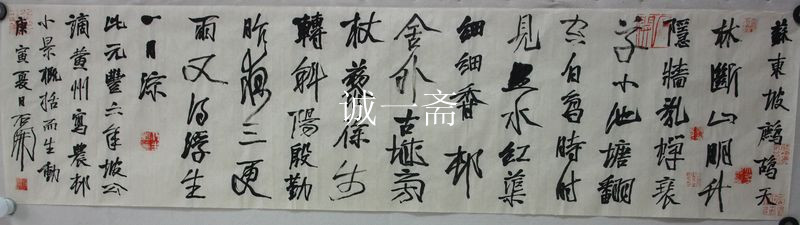 蘇東坡鷓鴣天
林斷山明竹
隱牆亂蟬衰
草小池塘翻
空白鳥時時
見照水紅渠
細細香邨
舍外古城旁
杖藜徐步
轉斜陽殷勤
昨夜三更
雨又得浮生
一日涼
此元豐六年坡公
謫黃州寫農邨
小景概括而生動
庚寅夏日
诚一斋